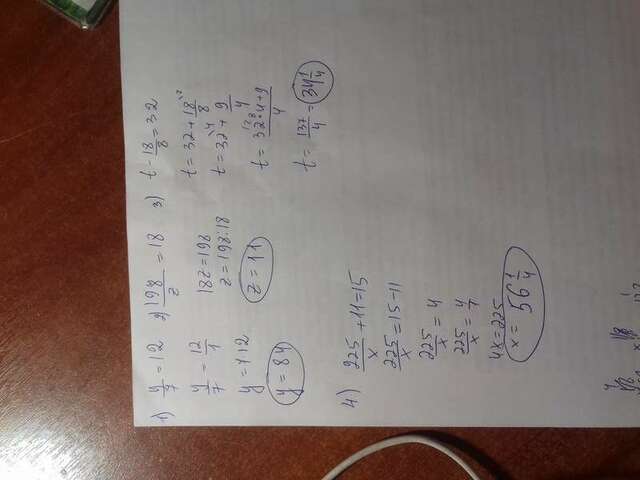 1) y/7 = 12
y/7 = 12/1
y = 7·12
y = 84
2) 198/z = 18
18z = 198
z = 198:18
z = 11
3) t - 18/8 = 32
t = 32 + 18/8
t = 32 + 9/4
128
t = 32·4+9/4
t = 137/4 = 34 1/4
4) 225/x + 11 = 15
225/x = 15-11
225/x = 4
225/x = 4/1
4x = 225
x = 56 1/4